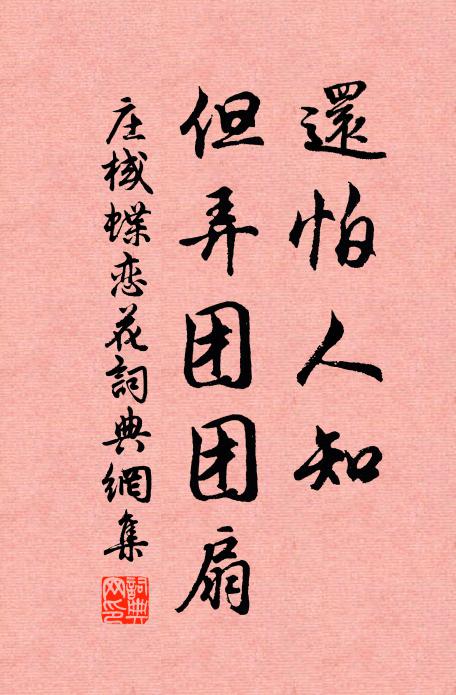 還怕人知
但弄团团扇
庄棫蝶恋花詞典網集
詞典網印